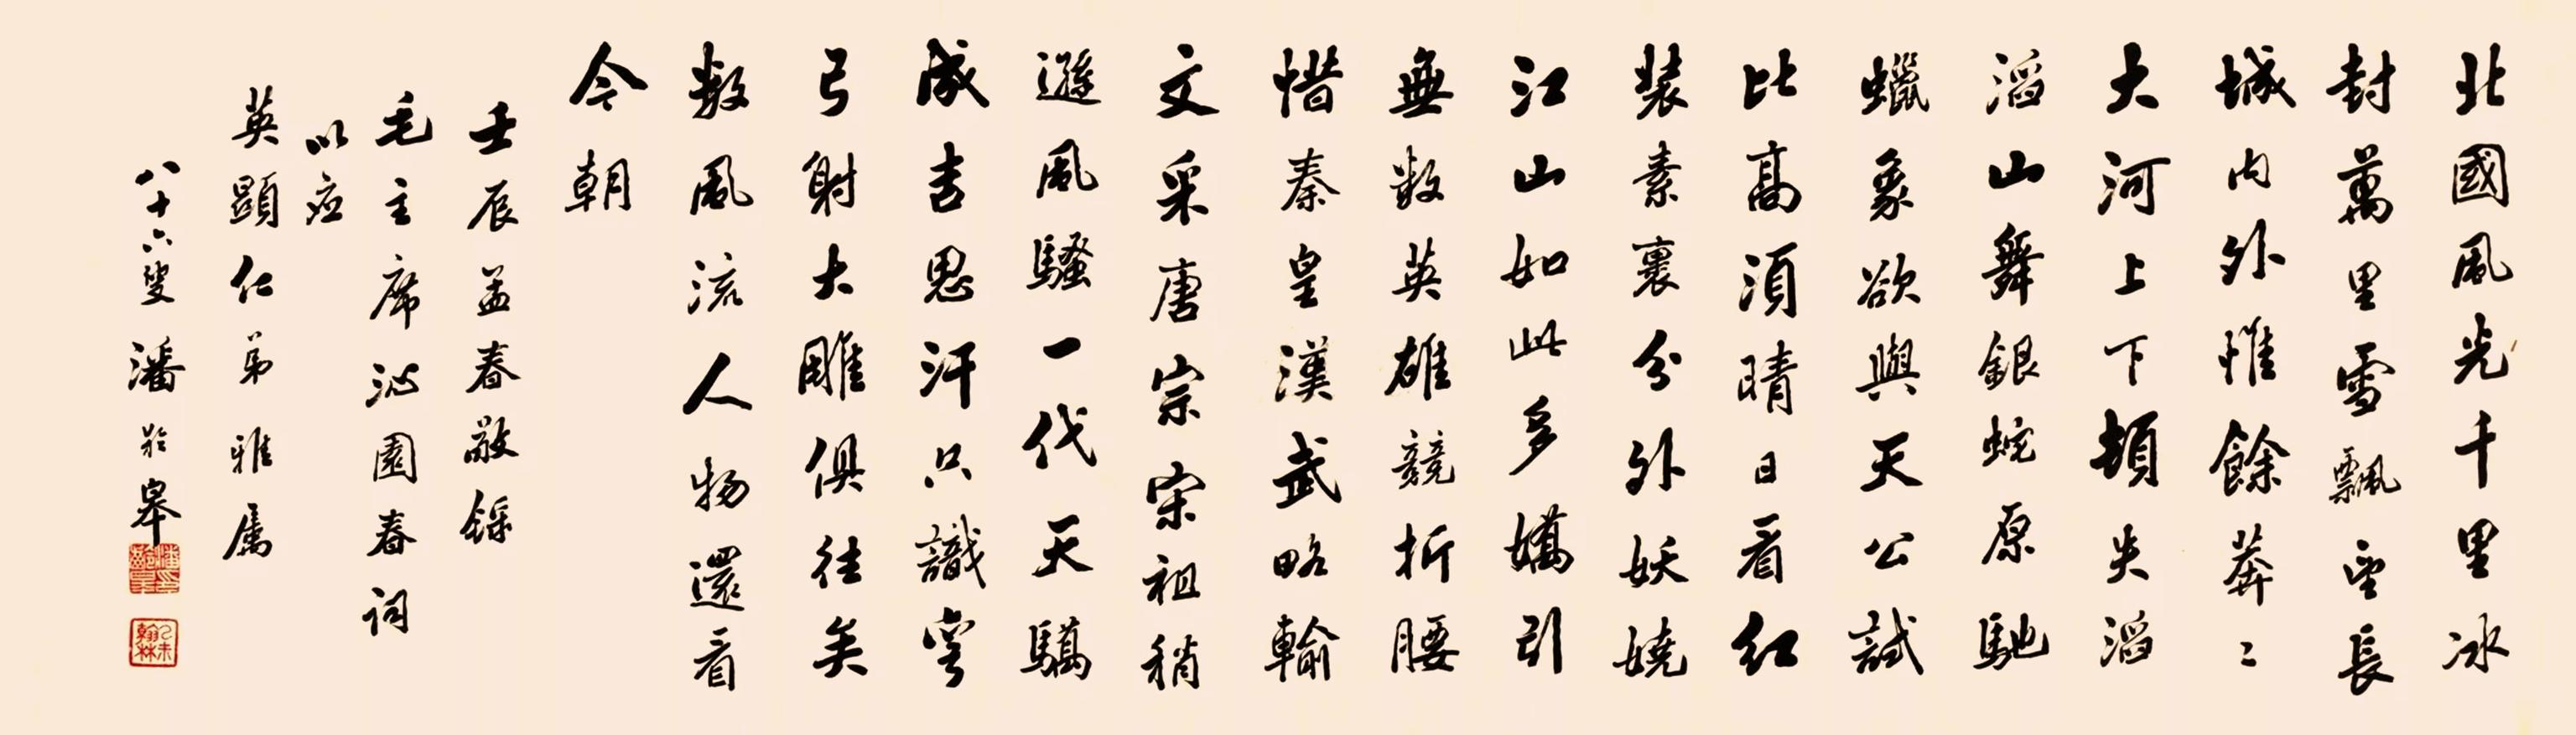 北國風光千里冰
封萬里雪飄望長
城內外惟餘莽〻
大河上下頓失滔
滔山舞銀蛇原馳
蠟象欲與天公試
比高須晴日看紅
裝素裹分外妖嬈
江山如此多嬌引
無數英雄競折腰
惜秦皇漢武略輸
文采唐宗宋祖稍
遜風騷一代天驕
成吉思汗只識彎
弓射大雕俱往矣
數風流人物還看
今朝
壬辰孟春敬錄
毛主席沁園春詞
以應
英顯仁弟雅屬
八十六叟潘齡皋
潘齡皋印
乙未翰林